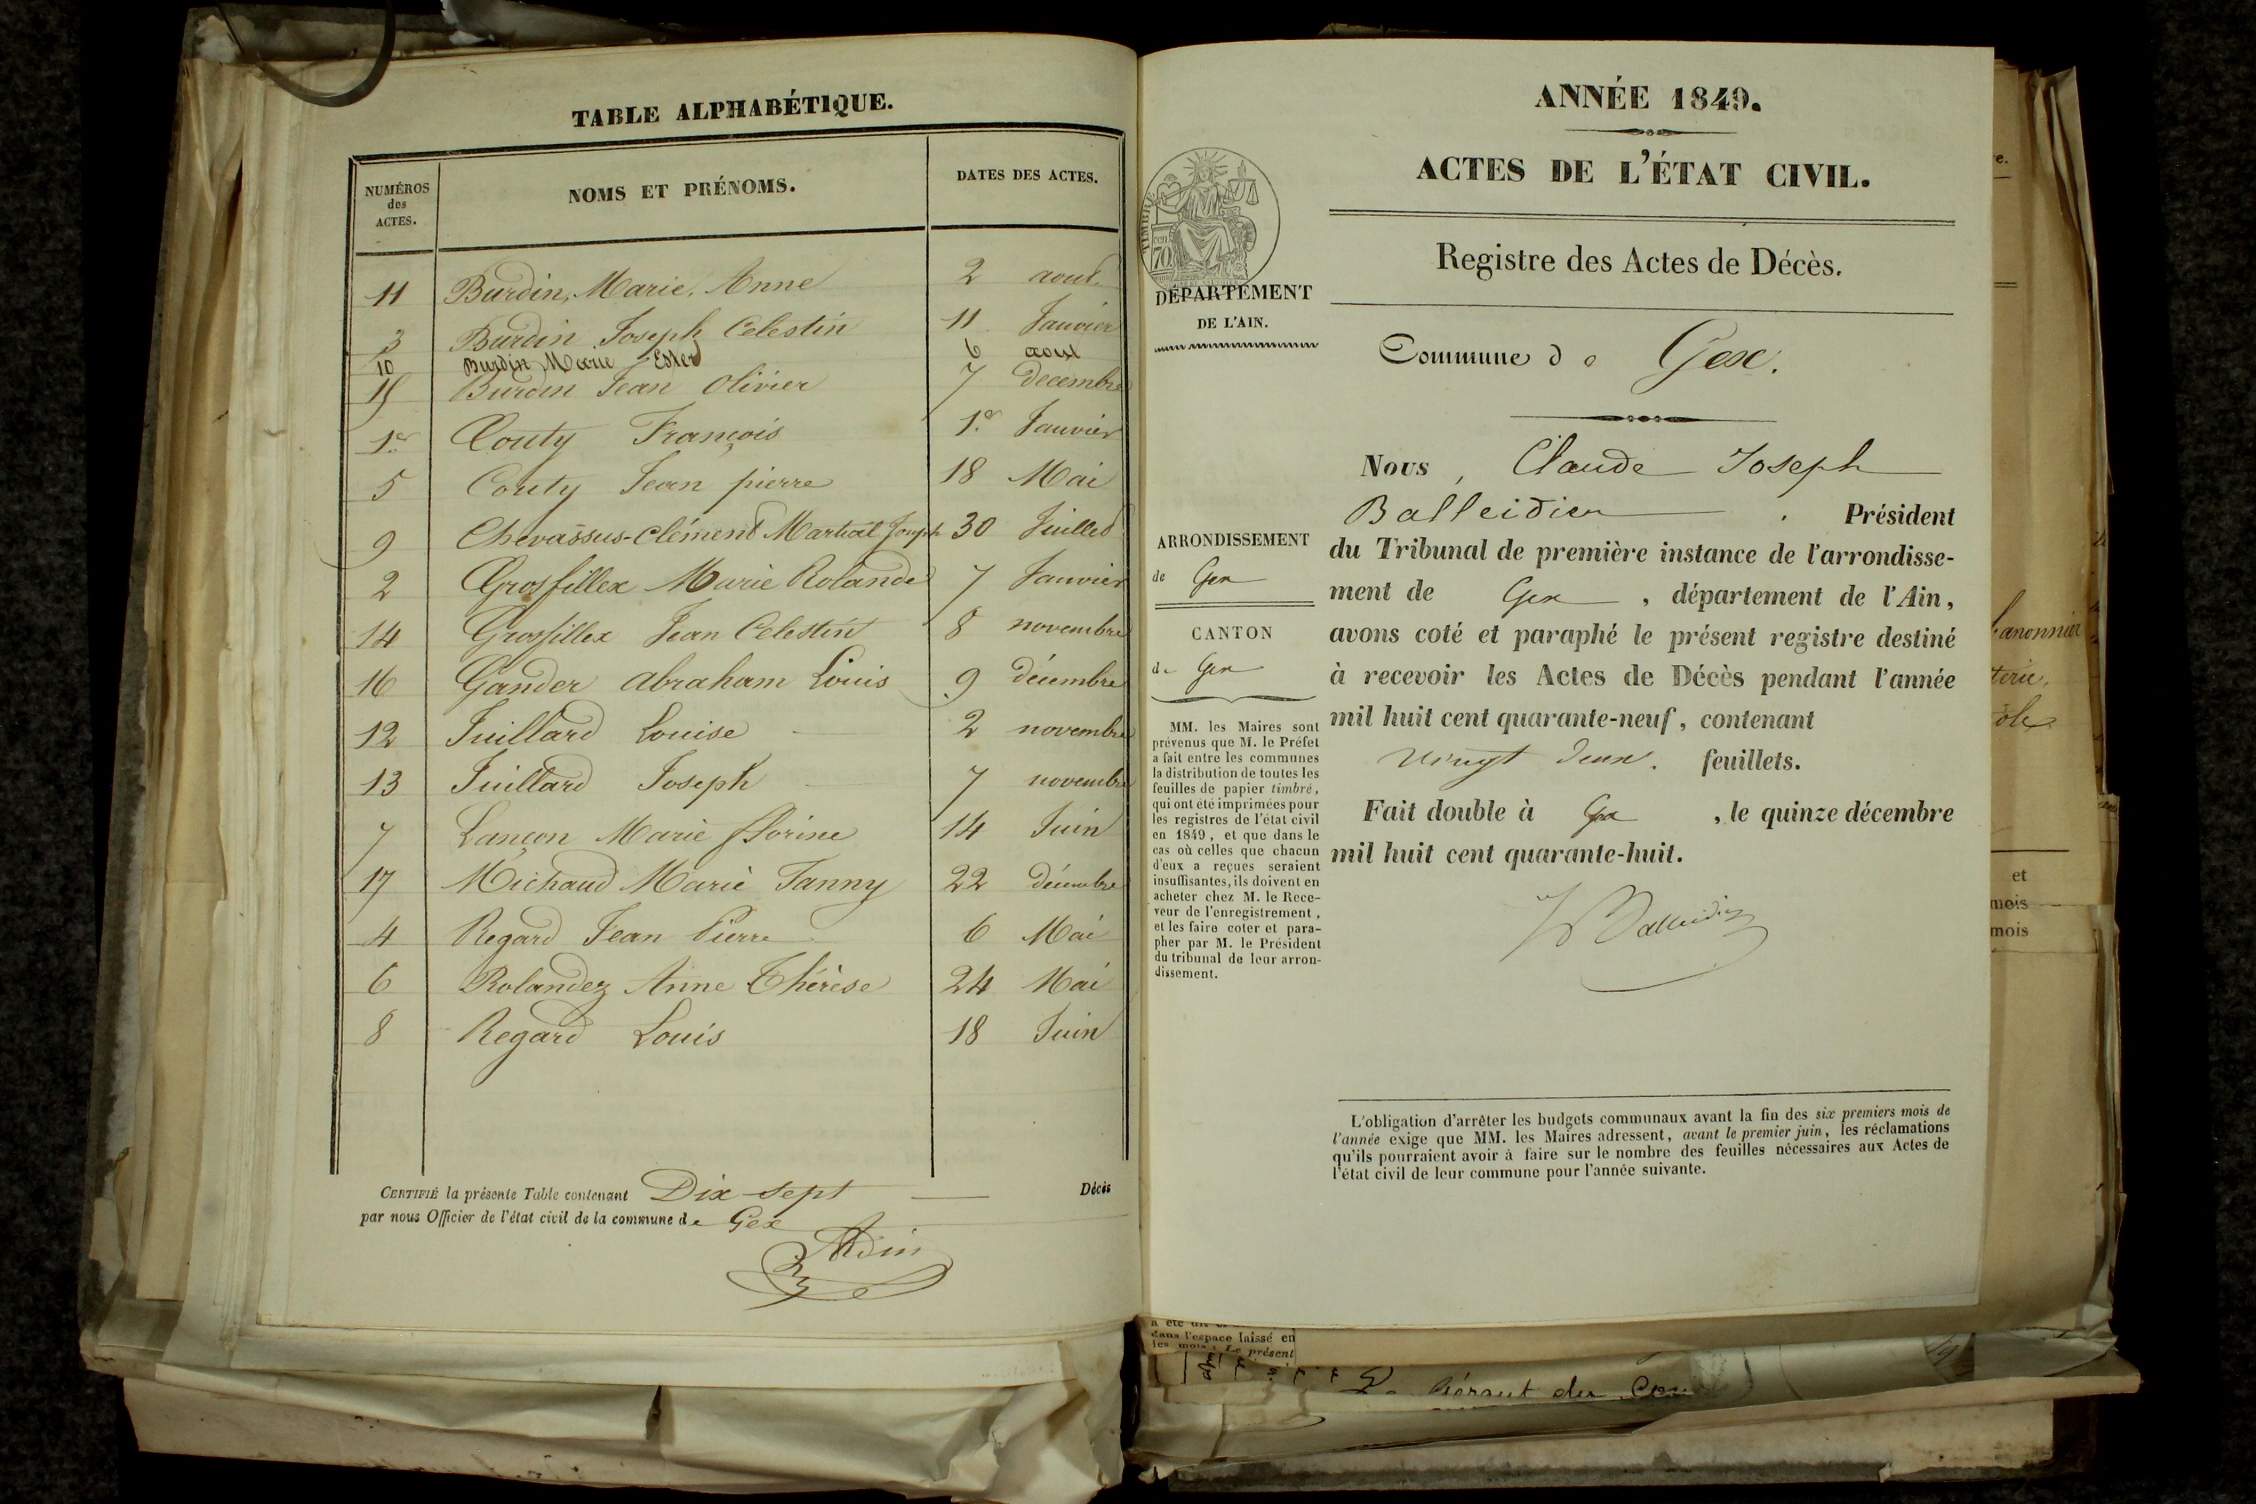 TABLE ALPHABÉTIQUE.
NUMÉROS des ACTES.
NOMS ET PRÉNOMS.
DATES DES ACTES.
11 Burdin, Marie, Anne 2 aout.
3 Burdin Joseph Celestin 11 Janvier
10 Burdin Marie Ester 6 aout
15 Burdin Jean Olivier 7 decembre
1er Couty François 1er Janvier
5 Couty Jean pierre 18 Mai
9 Chevassus-Clément Martial Joseph 30 Juillet
2 Grosfillex Marie Rolande 7 Janvier
14 Grosfillex Jean Celestin 8 novembre
16 Gander Abraham Louis 9 décembre
12 Juillard Louise 2 novembre
13 Juillard Joseph 7 novembre
7 Lançon Marie florine 14 Juin
17 Michaud Marie Fanny 22 décembre
4 Regard Jean Pierre 6 Mai
6 Rolandez Anne Thérèse 24 Mai
8 Regard Louis 18 Juin
CERTIFIÉ la présente Table contenant Dix sept Décès
par nous Officier de l'état civil de la commune de Gex
ANNÉE 1849.
ACTES DE L'ÉTAT CIVIL.
Registre des Actes de Décès.
TIMBRE
70
DÉPARTEMENT
DE L'AIN.
Commune de Gex.
Nous, Claude Joseph
Balleidier Président
du Tribunal de première instance de l'arrondisse-
ment de Gex, département de l'Ain,
avons coté et paraphé le présent registre destiné
à recevoir les Actes de Décès pendant l'année
mil huit cent quarante-neuf, contenant
vingt deux. feuillets.
Fait double à Gex, le quinze décembre
mil huit cent quarante-huit.
Balleidier
ARRONDISSEMENT
de Gex
CANTON
de Gex
MM. les Maires sont
prévenus que M. le Préfet
a fait entre les communes
la distribution de toutes les
feuilles de papier timbré,
qui ont été imprimées pour
les registres de l'état civil
en 1849, et que dans le
cas où celles que chacun
d'eux a reçues seraient
insuffisantes, ils doivent en
acheter chez M. le Rece-
veur de l'enregistrement,
et les faire coter et para-
pher par M. le Président
du tribunal de leur arron-
dissement.
L'obligation d'arrêter les budgets communaux avant la fin des six premiers mois de
l'année exige que MM. les Maires adressent, avant le premier juin, les réclamations
qu'ils pourraient avoir à faire sur le nombre des feuilles nécessaires aux Actes de
l'état civil de leur commune pour l'année suivante.
et
mois
mois
dans l'espace laissé en
Le présent